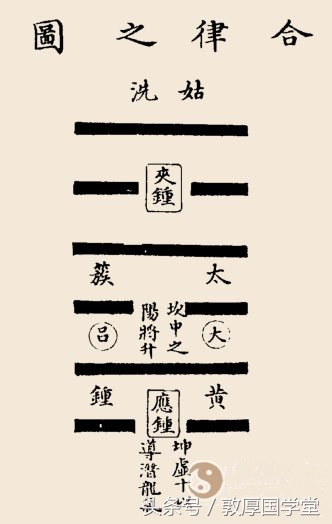 合律之圖
姑洗
夾鍾
太簇
大呂
坎中之
陽將升
黃鍾
應鍾
坤虛十
導潛龍
头条号 / 敦厚国学堂